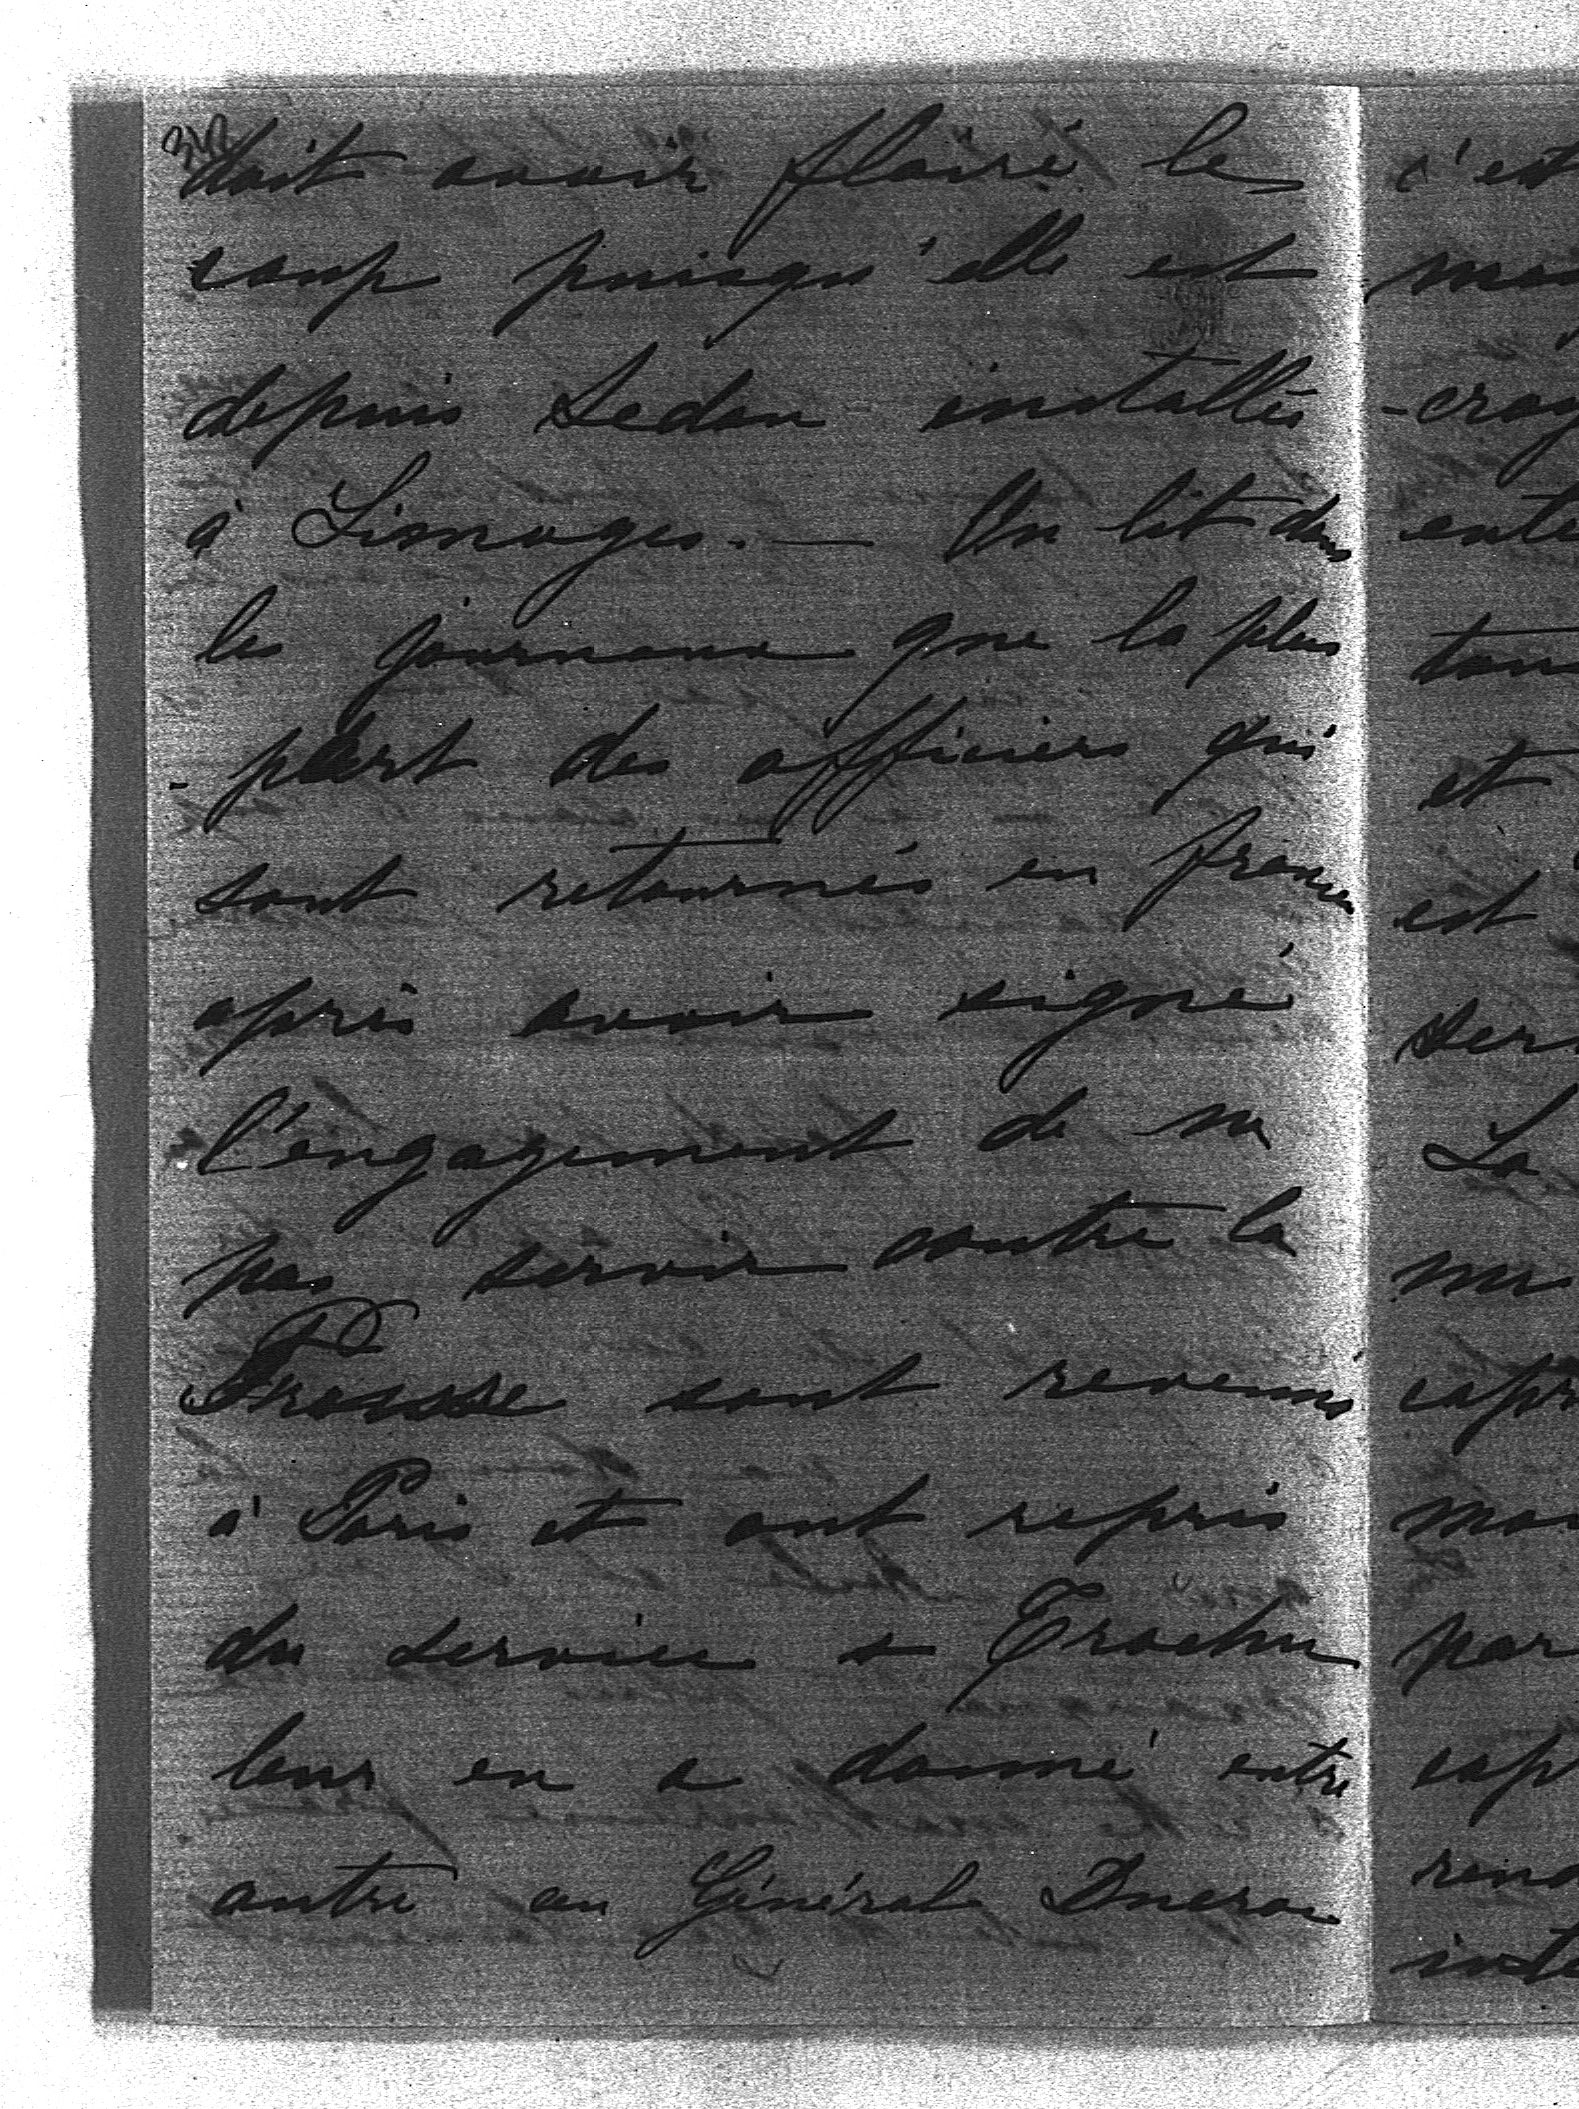 342
doit avoir flairé le
coup puisqu'elle est
depuis Sedan installée
à Limoges. — On lit dans
les journaux que la plus
- part des officiers qui
sont retournés en france
après avoir signé
l'engagement de ne
pas servir contre la
Prusse sont revenus
à Paris et ont repris
du service & Trochu
leur en a donné entre
autre au Général Ducrou
c'est
-croy
et
est
La